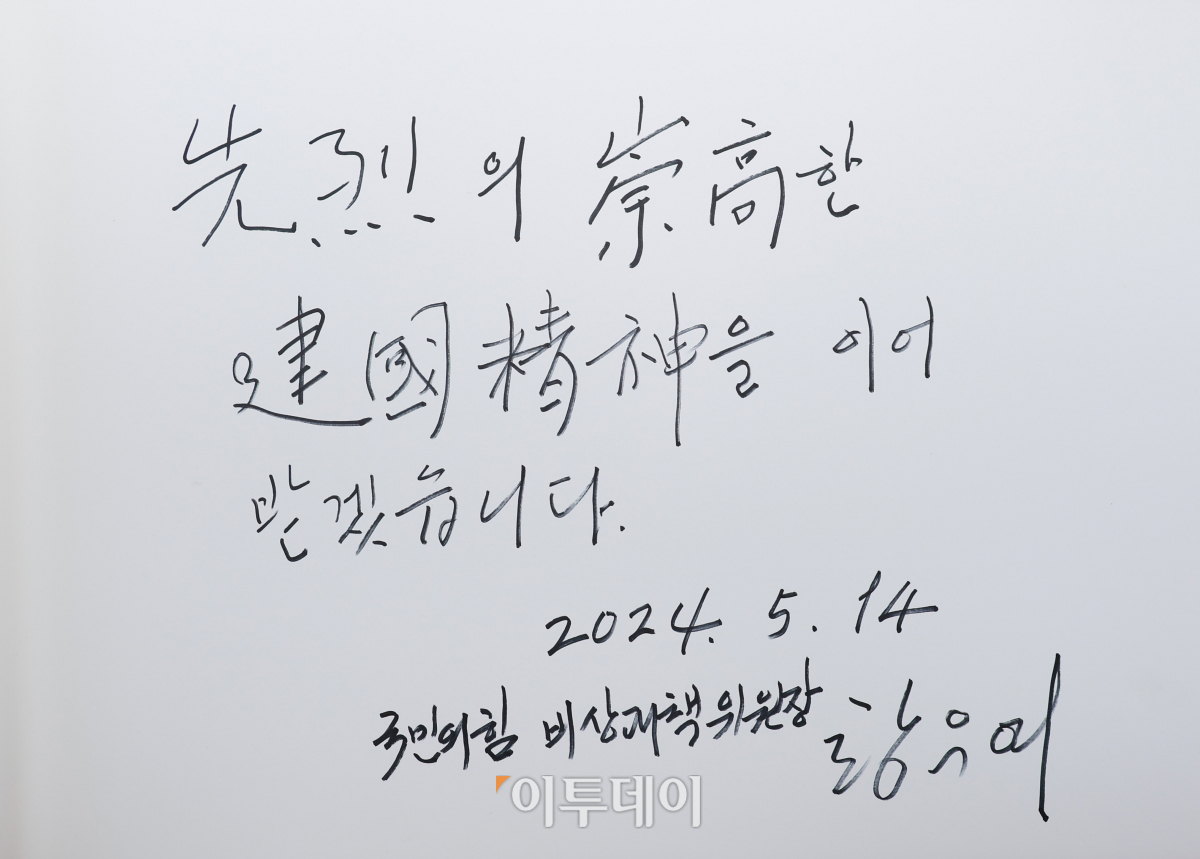 先烈의 崇高한
建國精神을 이어
받겠습니다.
2024. 5. 14
국민의힘 비상대책위원장 황우여
이투데이